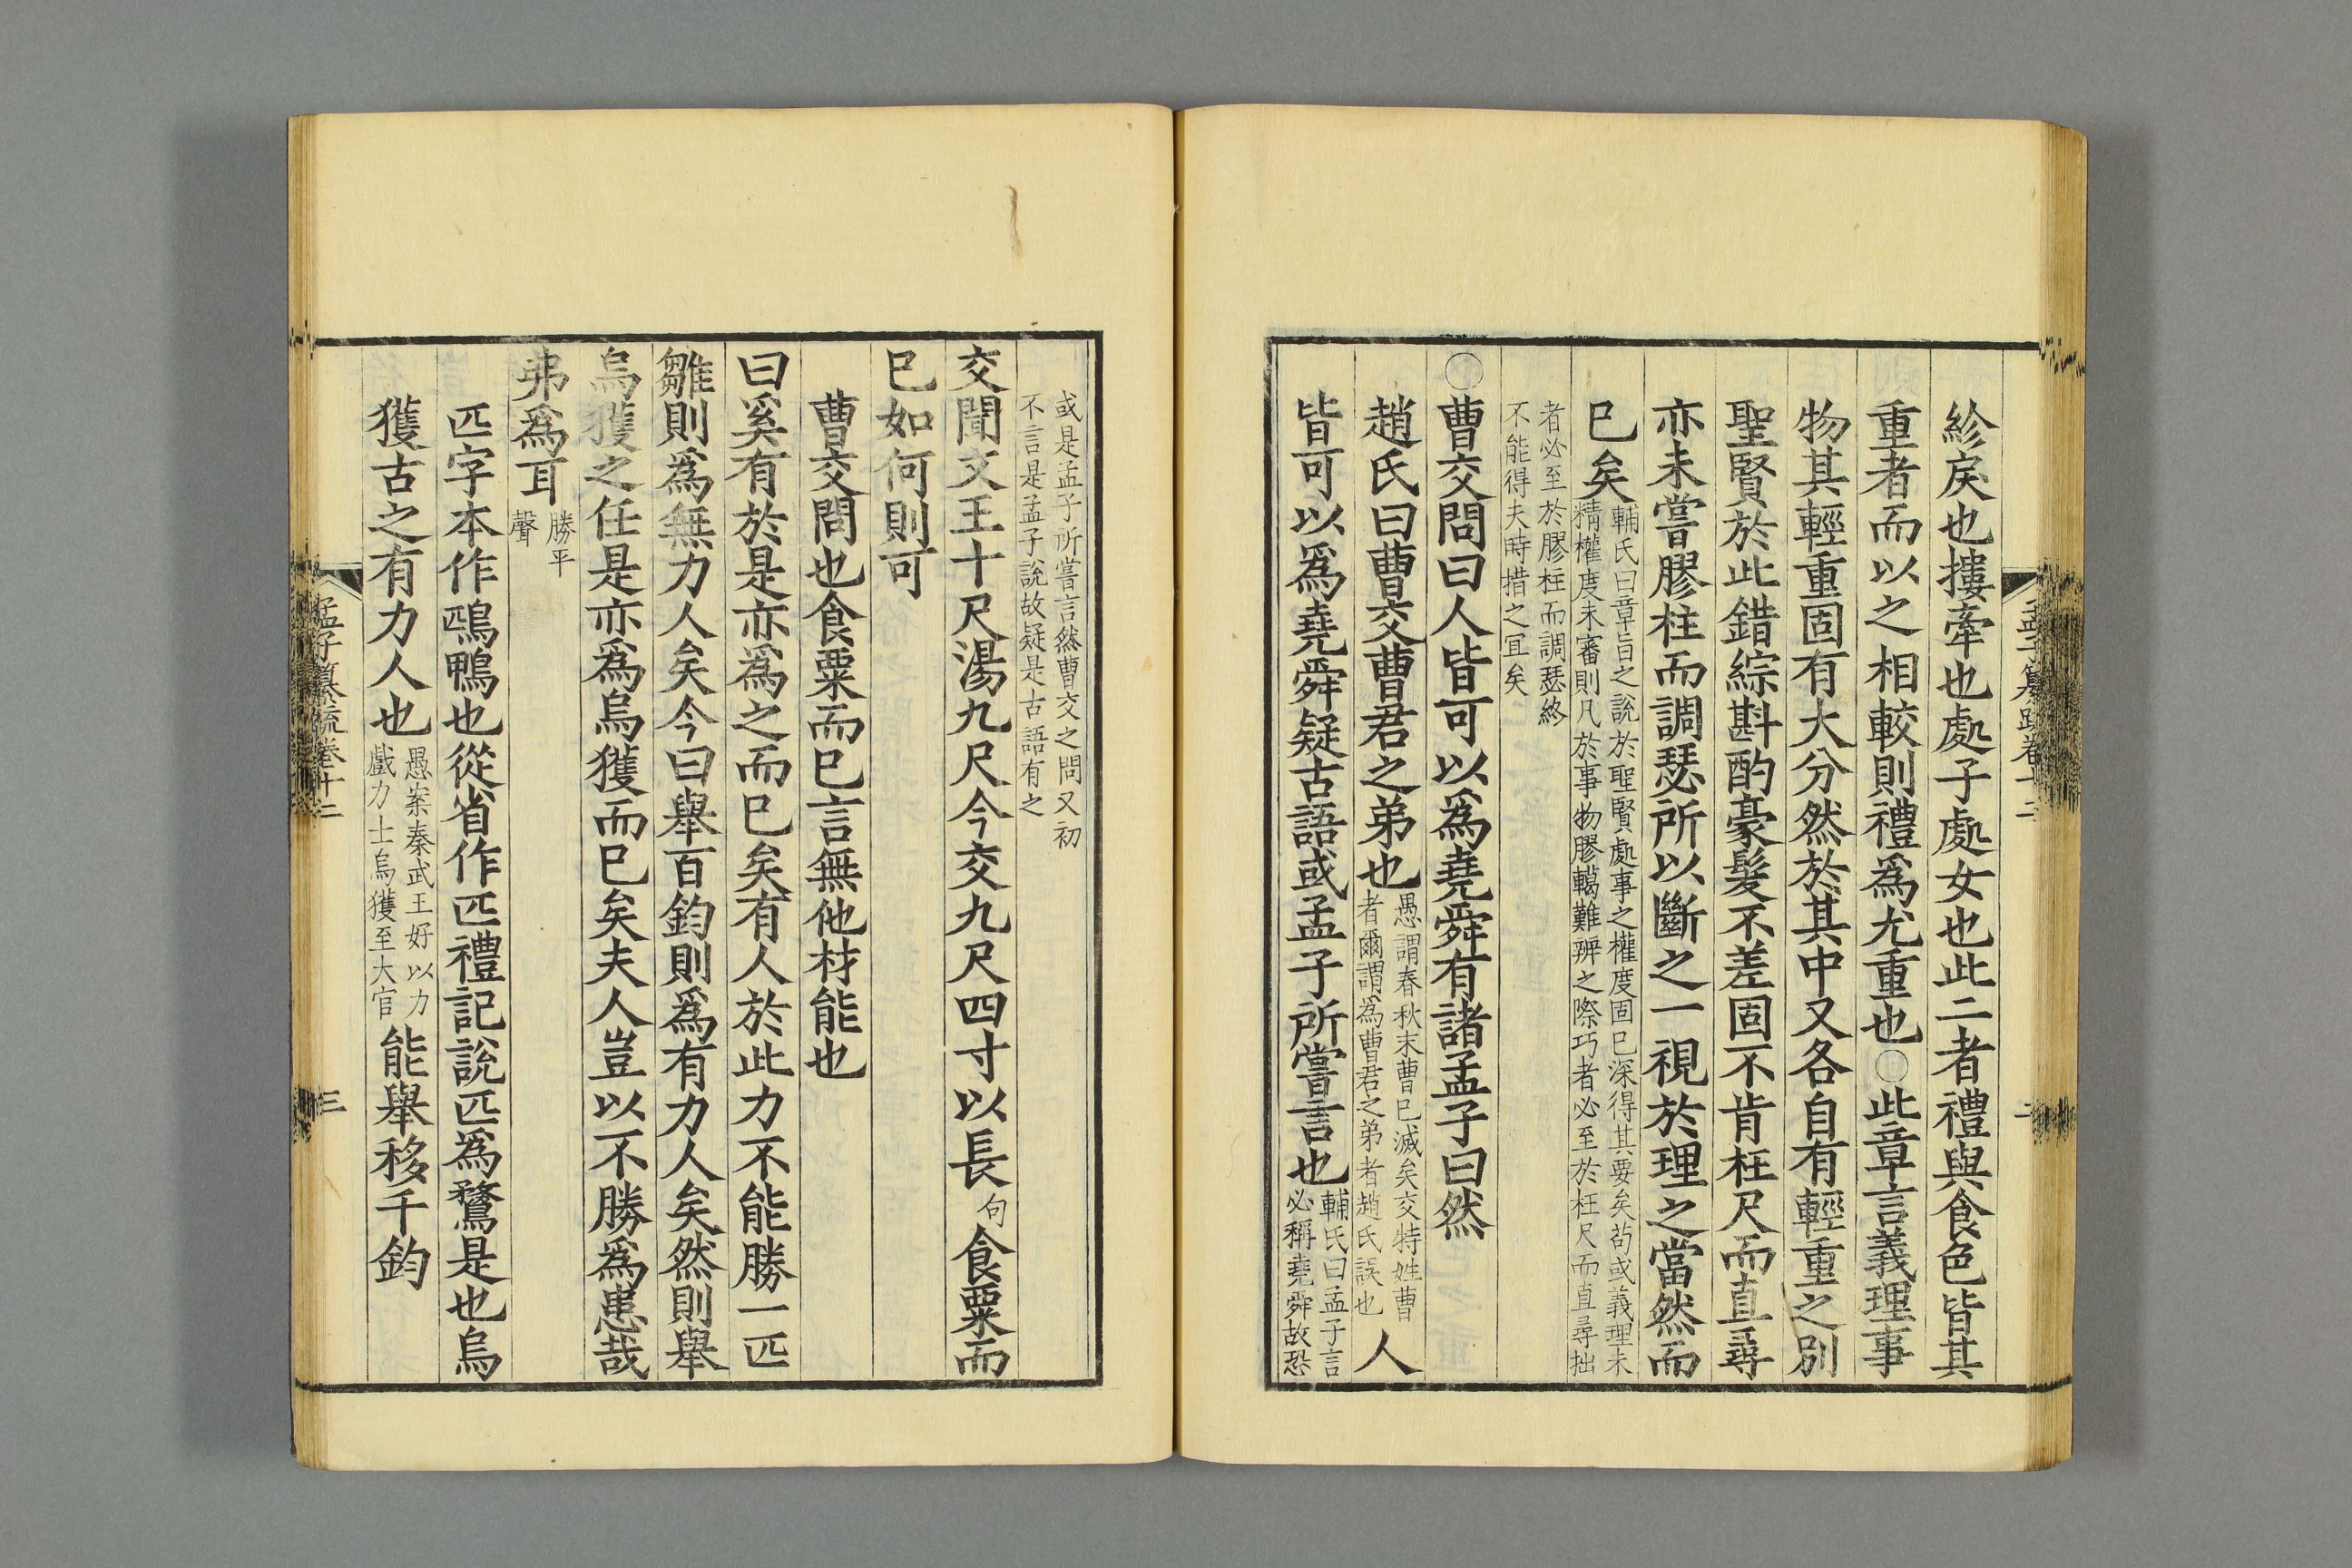 紾戾也摟牽也處子處女也此二者禮與食色皆其
重者而以之相較則禮爲尤重也〇此章言義理事
物其輕重固有大分然於其中又各自有輕重之別
聖賢於此錯綜斟酌豪髮不差固不肯枉尺而直尋
亦未嘗膠柱而調瑟所以斷之一視於理之當然而
已矣
輔氏曰章旨之說於聖賢處事之權度固已深得其要矣苟或義理未
精權度未審則凡於事物膠轕難辨之際巧者必至於枉尺而直尋拙
者必至於膠柱而調瑟終
不能得夫時措之宜矣
〇曹交問曰人皆可以爲堯舜有諸孟子曰然
趙氏曰曹交曹君之弟也
愚謂春秋末曹已滅矣交特姓曹
者爾謂為曹君之弟者趙氏誤也
人
皆可以爲堯舜疑古語或孟子所嘗言也
輔氏曰孟子言
必稱堯舜故恐
孟子纂疏卷十二
二
或是孟子所嘗言然曹交之問又初
不言是孟子說故疑是古語有之
交聞文王十尺湯九尺今交九尺四寸以長
句
食粟而
已如何則可
曹交問也食粟而已言無他材能也
曰奚有於是亦爲之而已矣有人於此力不能勝一匹
雛則爲無力人矣今曰舉百鈞則爲有力人矣然則舉
烏獲之任是亦爲烏獲而已矣夫人豈以不勝爲患哉
弗爲耳
勝平
聲
匹字本作鴄鴨也從省作匹禮記說匹爲鶩是也烏
獲古之有力人也
愚案秦武王好以力
戲力士烏獲至大官
能舉移千鈞
孟子纂疏卷十二
三